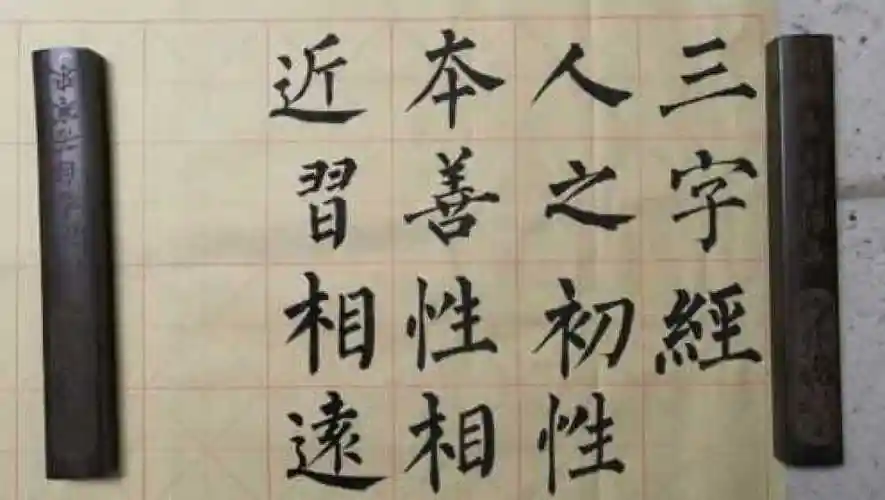 三字經
人之初性
本善性相
近習相遠